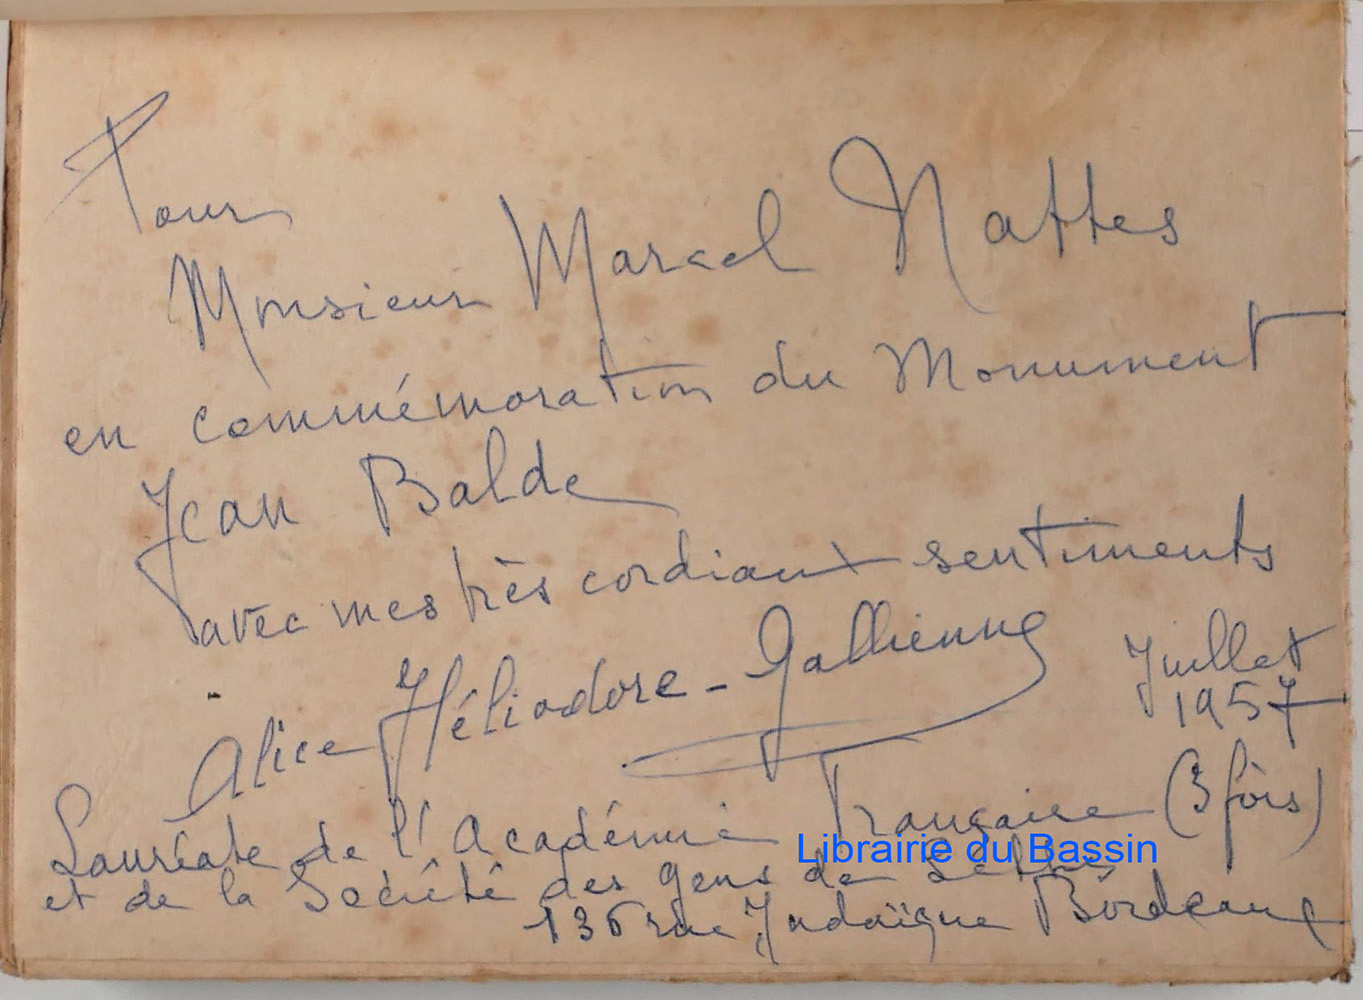 Pour
Monsieur Marcel Nattes
en commémoration du Monument
Jean Balde
avec mes très cordiaux sentiments
Alice Héliodore-Gallienne
Juillet
1957
Lauréate de l'Académie Française (3 fois)
Librairie du Bassin
et de la Société des gens de Lettres
136 rue Judaïque Bordeaux